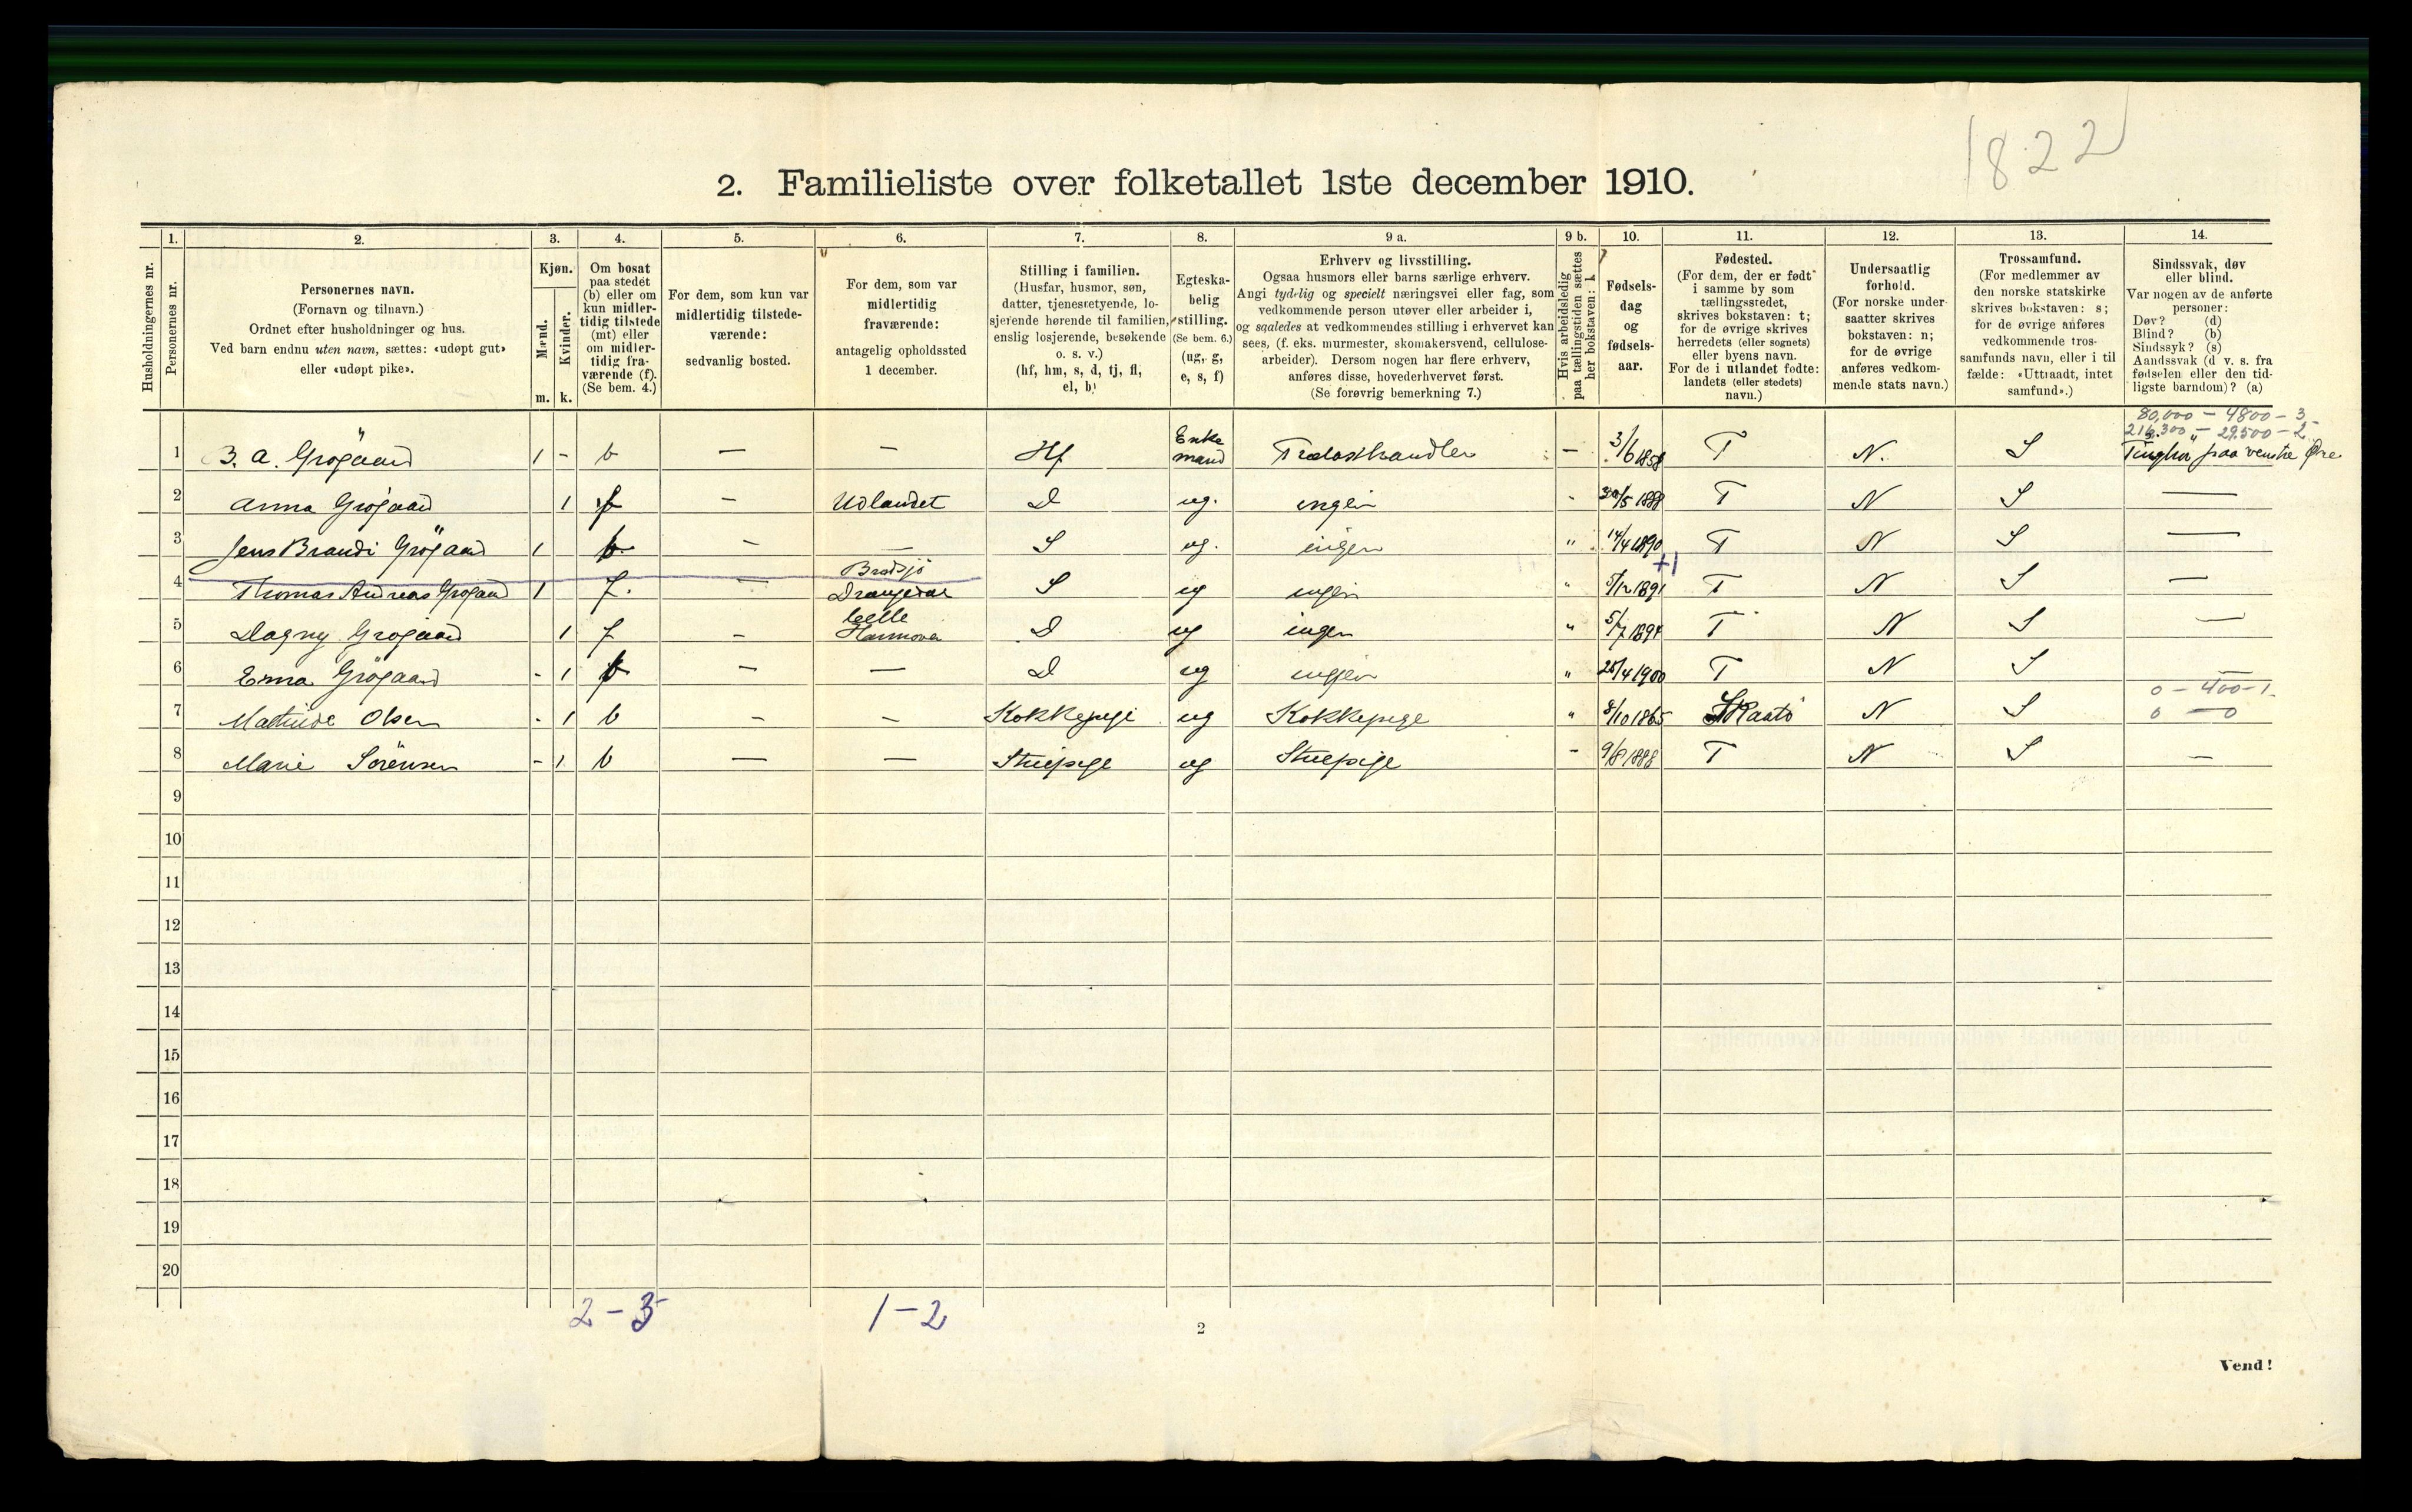 1822
2. Familieliste over folketallet 1ste december 1910.
1. 2. 3. 4. 5. 6. 7. 8. 9 a. 9 b. 10. 11. 12. 13. 14.
Husholdningernes nr.
Personernes nr.
Personernes navn.
(Fornavn og tilnavn.)
Ordnet efter husholdninger og hus.
Ved barn endnu uten navn, sættes: «udøpt gut»
eller «udøpt pike».
Kjøn.
Mænd.
Kvinder.
m. k.
Om bosat
paa stedet
(b) eller om
kun midler-
tidig tilstede
(mt) eller
om midler-
tidig fra-
værende (f).
(Se bem. 4.)
For dem, som kun var
midlertidig tilstede-
værende:
sedvanlig bosted.
For dem, som var
midlertidig
fraværende:
antagelig opholdssted
1 december.
Stilling i familien.
(Husfar, husmor, søn,
datter, tjenestetyende, lo-
sjerende hørende til familien,
enslig losjerende, besøkende
o. s. v.)
(hf, hm, s, d, tj, fl,
el, b)
Egteska-
belig
stilling.
(Se bem. 6.)
(ug, g,
e, s, f)
Erhverv og livsstilling.
Ogsaa husmors eller barns særlige erhverv.
Angi tydelig og specielt næringsvei eller fag, som
vedkommende person utøver eller arbeider i,
og saaledes at vedkommendes stilling i erhvervet kan
sees, (f. eks. murmester, skomakersvend, cellulose-
arbeider). Dersom nogen har flere erhverv,
anføres disse, hovederhvervet først.
(Se forøvrig bemerkning 7.)
Hvis arbeidsledig
paa tællingstiden sættes
her bokstaven: l.
Fødsels-
dag
og
fødsels-
aar.
Fødested.
(For dem, der er født
i samme by som
tællingsstedet,
skrives bokstaven: t;
for de øvrige skrives
herredets (eller sognets)
eller byens navn.
For de i utlandet fødte:
landets (eller stedets)
navn.)
Undersaatlig
forhold.
(For norske under-
saatter skrives
bokstaven: n;
for de øvrige
anføres vedkom-
mende stats navn.)
Trossamfund.
(For medlemmer av
den norske statskirke
skrives bokstaven: s;
for de øvrige anføres
vedkommende tros-
samfunds navn, eller i til
fælde: «Uttraadt, intet
samfund».)
Sindssvak, døv
eller blind.
Var nogen av de anførte
personer:
Døv? (d)
Blind? (b)
Sindssyk? (s)
Aandssvak (d v. s. fra
fødselen eller den tid-
ligste barndom)? (a)
80,000 – 4800 – 3
216.300 – 29.500 – 2
1 B. A. Grögaard 1 - b — — Hf Enkemand Trælasthandler — 3/6 1858 T N. S Tunghør paa venstre Øre
2 Anna Grögaard 1 f — Udlandet D ug. ingen - 30/5 1888 T N S —
3 Jens Brandi Grögaard 1 b — — S ug. ingen " 14/4 1890 T N S —
+1
4 Thomas Andreas Grögaard 1 f. — Bredsjø Drangedal S ug ingen " 5/12 1891 T N S —
5 Dagny Grögaard 1 f — Celle Hannover D ug ingen " 5/7 1894 T N S —
6 Erna Grögaard - 1 b — — D ug ingen " 25/4 1900 T N S —
0 – 400 – 1.
7 Mathilde Olsen - 1 b — — Kokkepige ug Kokkepige " 8/10 1865 Skaatö N S 0 — 0
8 Marie Sörensen - 1 b — — Stuepige ug Stuepige - 9/8 1888 T N S —
9
10
11
12
13
14
15
16
17
18
19
20
2 – 3 1 – 2
2
Vend!